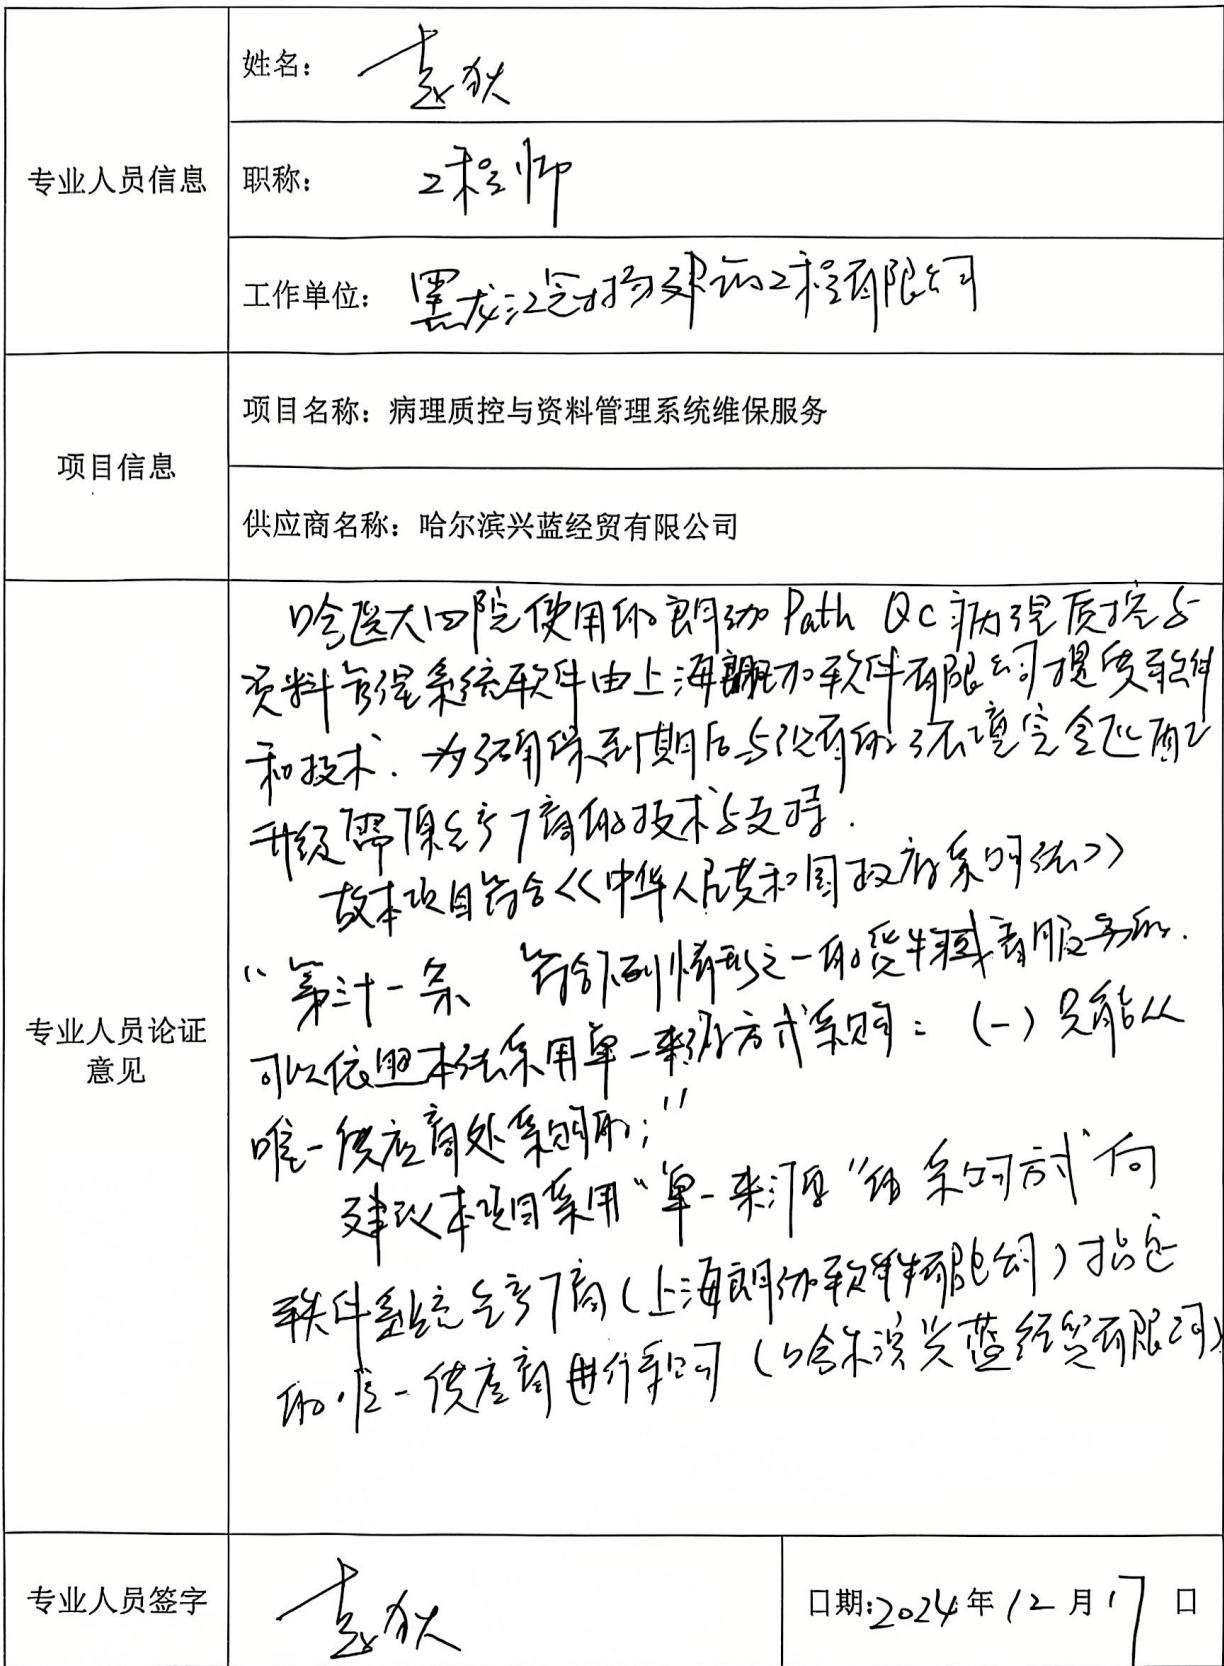 专业人员信息
姓名: 袁狄
职称: 工程师
工作单位: 黑龙江 建筑工程有限公司
项目信息
项目名称: 病理质控与资料管理系统维保服务
供应商名称: 哈尔滨兴蓝经贸有限公司
专业人员论证
意见
哈医大四院使用的朗珈Path Qc病理质控与
资料管理系统软件由上海朗珈软件有限公司提供软件
和技术. 为了确保到期后与现有的环境完全匹配
升级需原生产厂商的技术与支持.
故本项目符合《中华人民共和国政府采购法》
“第三十一条 符合下列情形之一的货物或者服务的.
可以依照本法采用单一来源方式采购: (一) 只能从
唯一供应商处采购的;”
建议本项目采用“单一来源”的采购方式 向
软件系统生产厂商(上海朗珈软件有限公司)指定
的唯一供应商进行采购 (哈尔滨兴蓝经贸有限公司)
专业人员签字
袁狄
日期:2024年12月17日